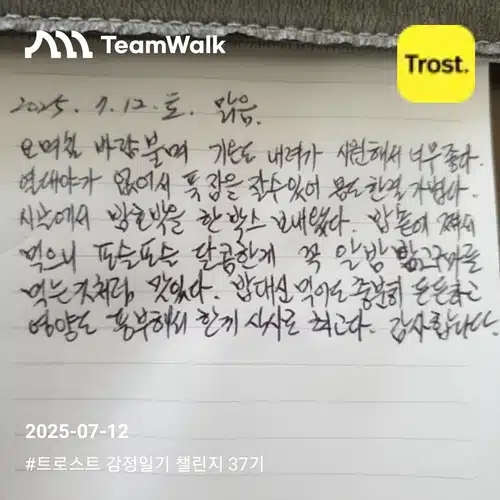 TeamWalk
Trost.
2025. 7. 12. 토. 맑음.
오며칠 바람불며 기온도 내려가 시원해서 너무좋다.
열대야가 없어서 푹 잠을 잘수있어 몸도 한결 가볍다.
시골에서 밤호박을 한박스 보내왔다. 밥솥에 쪄서
먹으니 포슬포슬 달콤한게 꼭 알밤 고구마를
먹는것처럼 맛있다. 밥대신 먹어도 충분히 든든하고
영양도 풍부해서 한끼 식사로 최고다. 감사합니다.
2025-07-12
#트로스트 감정일기 챌린지 37기